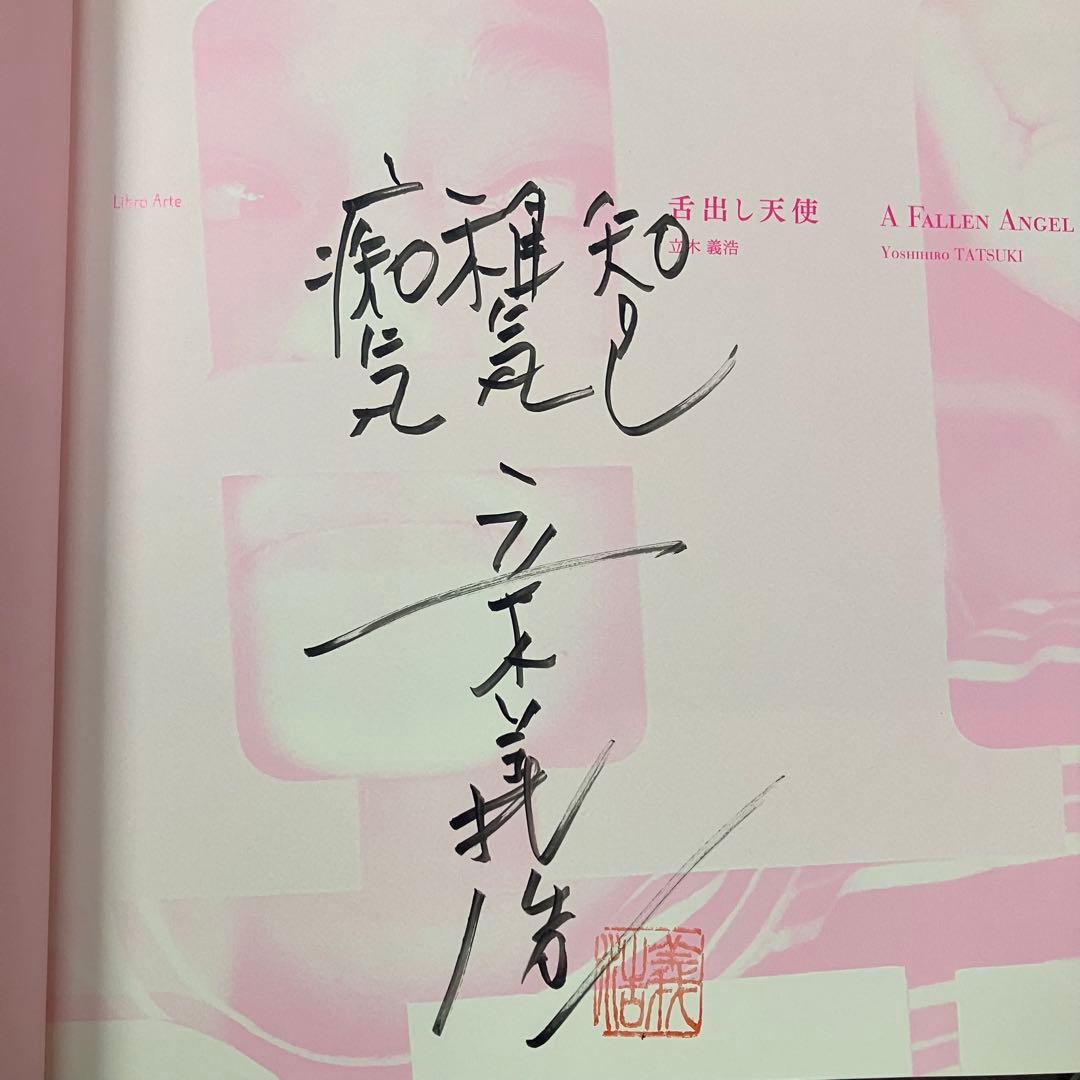 Libro Arte
舌出し天使
立木 義浩
A FALLEN ANGEL
YOSHIHIRO TATSUKI
知
痴
立木義浩
義浩